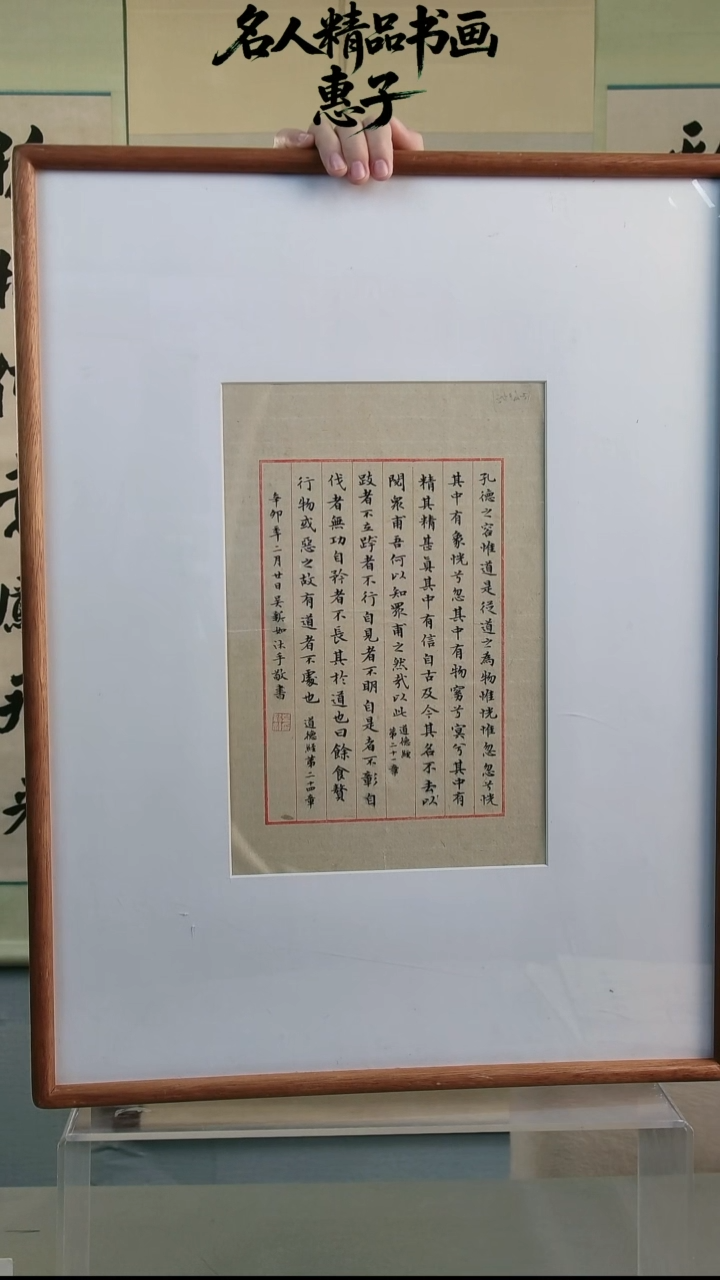 名人精品书画
惠子
孔德之容惟道是從道之為物惟恍惟忽忽兮恍
其中有象恍兮忽其中有物窈兮冥兮其中有
精其精甚真其中有信自古及今其名不去以
閱眾甫吾何以知眾甫之然哉以此 道德經第二十一章
跂者不立跨者不行自見者不明自是者不彰自
伐者無功自矜者不長其於道也曰餘食贅
行物或惡之故有道者不處也 道德經第二十四章
辛卯年二月廿日吳 如沐手敬書